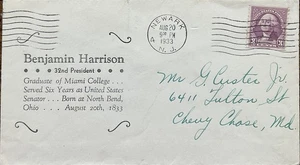 NEWARK
AUG 20
5 PM
1933
N. J.
Benjamin Harrison
32nd President
Graduate of Miami College . . .
Served Six Years as United States
Senator . . . Born at North Bend,
Ohio . . . August 20th, 1833
Mr G. Custer Jr.
6411 Fulton St
Chevy Chase, Md